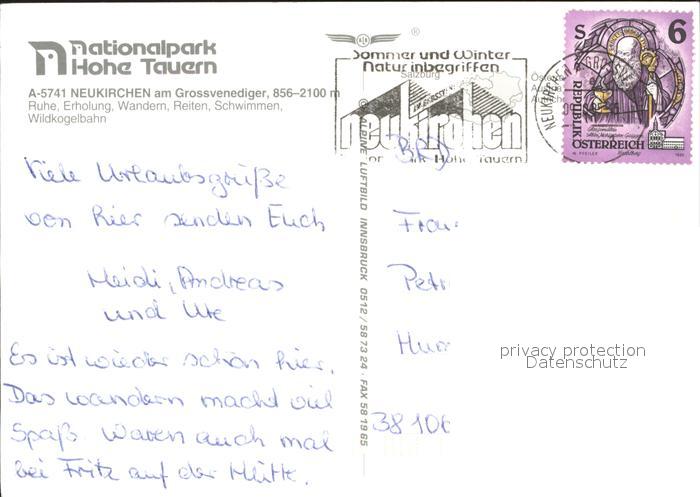 Nationalpark
Hohe Tauern
A-5741 NEUKIRCHEN am Grossvenediger, 856–2100 m
Ruhe, Erholung, Wandern, Reiten, Schwimmen,
Wildkogelbahn
Viele Urlaubsgrüße
von hier senden Euch
Heidi, Andreas
und Ute
Es ist wieder schön hier.
Das wandern macht viel
Spaß. Waren auch mal
bei Fritz auf der Hütte.
ALPINE LUFTBILD INNSBRUCK 0512/587324 · FAX 581985
®
Sommer und Winter
Natur inbegriffen
Salzburg
neukirchen
Hohe Tauern
6
REPUBLIK
ÖSTERREICH
BRD
Frau
Petr
38106
privacy protection
Datenschutz